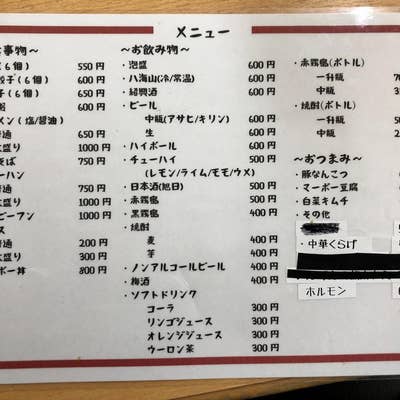 メニュー
事物～
（６個） 550 円
餃子（６個） 600 円
子（６個） 650 円
650 円
メン（塩／醤油）
650 円
盛り 1000 円
そば 750 円
ーハン
750 円
盛り 1000 円
ビーフン 1000 円
ス
200 円
盛り 300 円
ボー丼 800 円
～お飲み物～
・泡盛 600 円
・八海山(冷/常温) 600 円
・紹興酒 600 円
・ビール
中瓶(アサヒ/キリン) 600 円
生 600 円
・ハイボール 600 円
・チューハイ 500 円
(レモン/ライム/モモ/ウメ)
・日本酒(旭日) 500 円
・赤霧島 500 円
・黒霧島 400 円
・焼酎
麦 400 円
芋 400 円
・ノンアルコールビール 400 円
・梅酒 400 円
・ソフトドリンク
コーラ 300 円
リンゴジュース 300 円
オレンジジュース 300 円
ウーロン茶 300 円
・赤霧島(ボトル)
一升瓶
三升瓶
・焼酎(ボトル)
一升瓶
中瓶
～おつまみ～
・豚なんこつ
・マーボー豆腐
・白菜キムチ
・その他
・中華くらげ
ホルモン